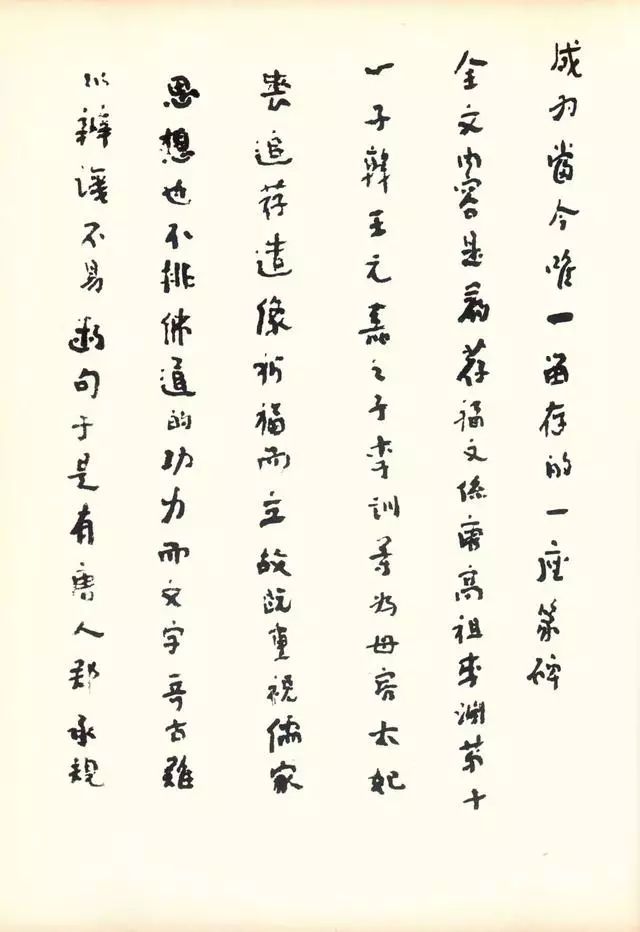 成为當今唯一留存的一座篆碑
全文内容是篇荐福文係唐高祖李渊第十
一子韓王元嘉之子李訓等为母容太妃
喪追荐造像祈福而立故既重視儒家
思想也不排佛道的功力而文字奇古難
以辨識不易断句于是有唐人郑承規